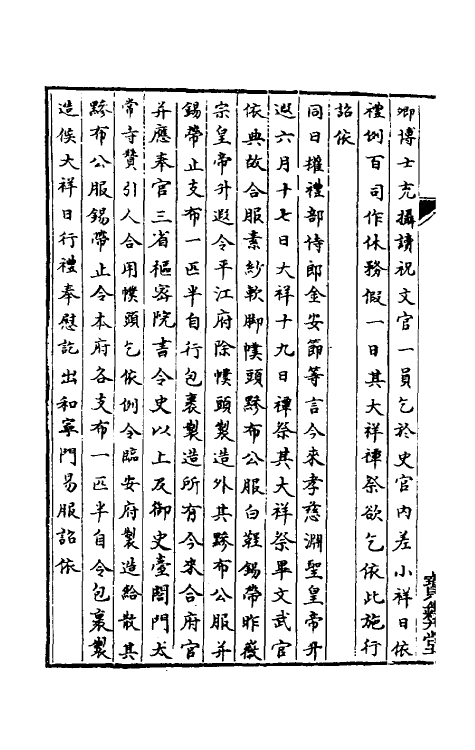 卿博士充攝讀祝文官一員乞於史官內差小祥日依
禮例百司作休務假一日其大祥禫祭欲乞依此施行
詔依
同日權禮部侍郎金安節等言今來孝慈淵聖皇帝升
遐六月十七日大祥十九日禫祭其大祥祭畢文武官
依典故合服素紗軟腳幞頭黲布公服白鞓錫帶昨徽
宗皇帝升遐令平江府除幞頭製造外其黲布公服并
錫帶止支布一匹半自行包裹製造所有今來合府官
并應奉官三省樞密院書令史以上及御史臺閤門太
常寺贊引人合用幞頭乞依例令臨安府製造給散其
黲布公服錫帶止令本府各支布一匹半自令包裹製
造候大祥日行禮奉慰訖出和寧門易服詔依